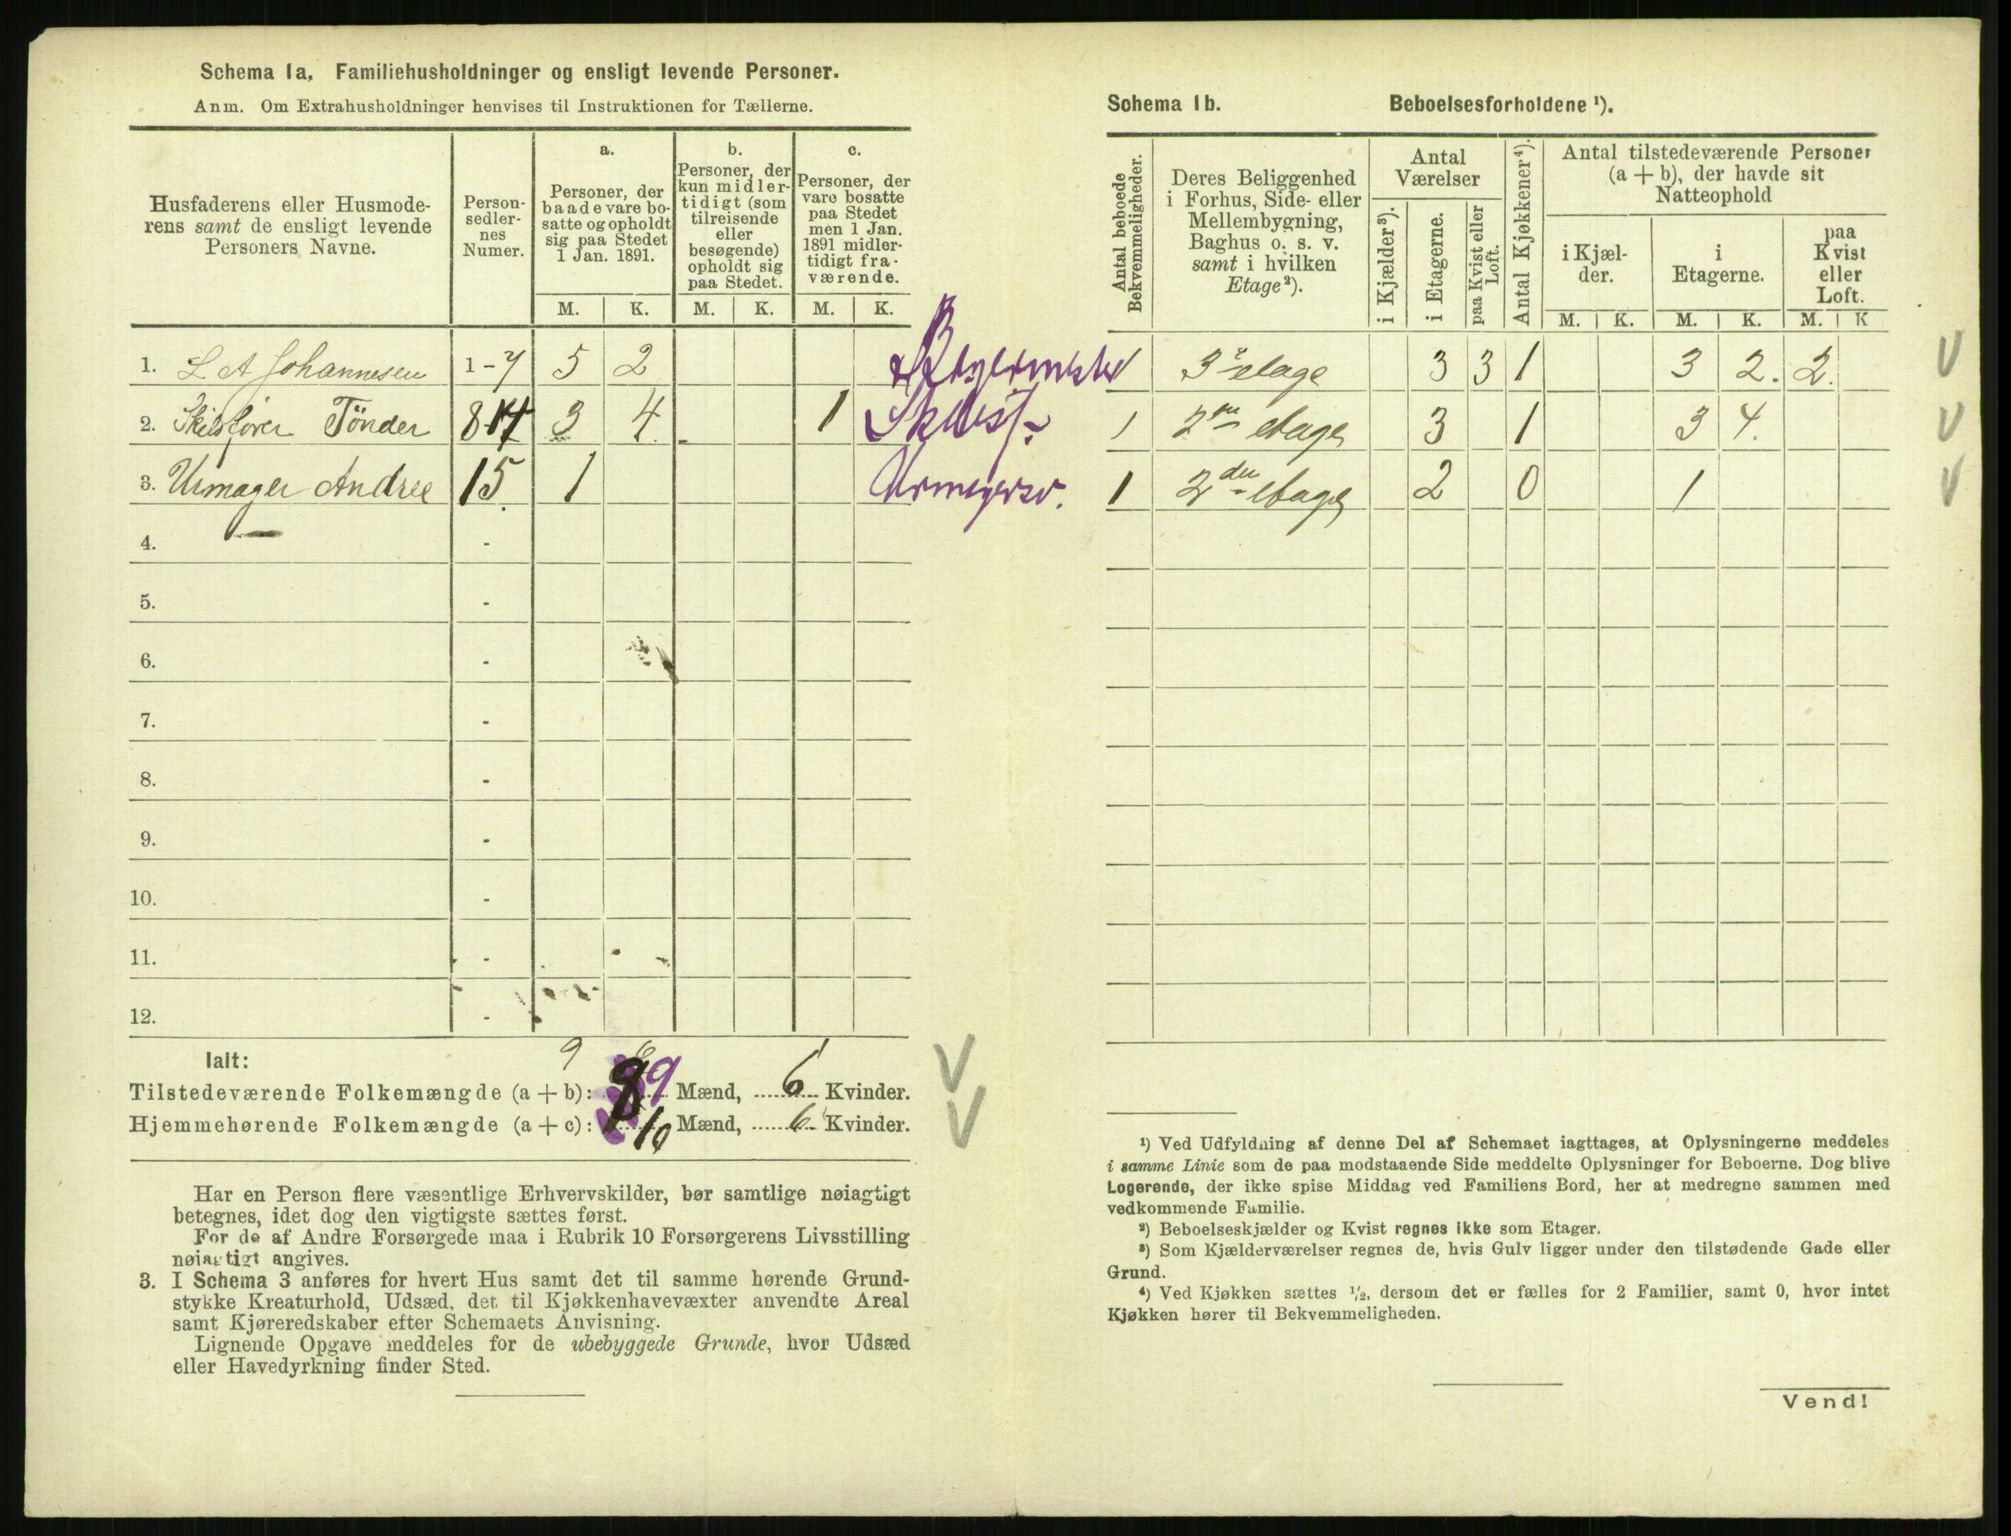 Schema 1a, Familiehusholdninger og ensligt levende Personer.
Anm. Om Extrahusholdninger henvises til Instruktionen for Tællerne.
Husfaderens eller Husmoderens samt de ensligt levende Personers Navne.
Person-sedlernes Numer.
a. Personer, der baade vare bosatte og opholdt sig paa Stedet 1 Jan. 1891.
b. Personer, der kun midlertidigt (som tilreisende eller besøgende) opholdt sig paa Stedet.
c. Personer, der vare bosatte paa Stedet men 1 Jan. 1891 midlertidigt fraværende.
M. K. M. K. M. K.
1. L A Johannesen 1-7 5 2
2. Skibsfører Tönder 8 14 3 4 1
3. Urmager Andree 15. 1
4. -
5. -
6. -
7. -
8. -
9. -
10. -
11. -
12. -
Ialt: 9 6
Tilstedeværende Folkemængde (a + b): 9 Mænd, 6 Kvinder.
Hjemmehørende Folkemængde (a + c): 10 Mænd, 6 Kvinder.
Har en Person flere væsentlige Erhvervskilder, bør samtlige nøiagtigt
betegnes, idet dog den vigtigste sættes først.
For de af Andre Forsørgede maa i Rubrik 10 Forsørgerens Livsstilling
nøiagtigt angives.
3. I Schema 3 anføres for hvert Hus samt det til samme hørende Grund-
stykke Kreaturhold, Udsæd, det til Kjøkkenhavevæxter anvendte Areal
samt Kjøreredskaber efter Schemaets Anvisning.
Lignende Opgave meddeles for de ubebyggede Grunde, hvor Udsæd
eller Havedyrkning finder Sted.
Schema 1b. Beboelsesforholdene ¹).
Antal beboede Bekvemmeligheder.
Deres Beliggenhed i Forhus, Side- eller Mellembygning, Baghus o. s. v. samt i hvilken Etage²).
Antal Værelser
i Kjælder³).
i Etagerne.
paa Kvist eller Loft.
Antal Kjøkkener⁴).
Antal tilstedeværende Personer (a + b), der havde sit Natteophold
i Kjælder.
i Etagerne.
paa Kvist eller Loft.
M. K. M. K. M. K
1 3e etage 3 3 1 3 2. 2.
1 2den etage 3 1 3 4.
1 2den etage 2 0 1
¹) Ved Udfyldning af denne Del af Schemaet iagttages, at Oplysningerne meddeles
i samme Linie som de paa modstaaende Side meddelte Oplysninger for Beboerne. Dog blive
Logerende, der ikke spise Middag ved Familiens Bord, her at medregne sammen med
vedkommende Familie.
²) Beboelseskjælder og Kvist regnes ikke som Etager.
³) Som Kjælderværelser regnes de, hvis Gulv ligger under den tilstødende Gade eller
Grund.
⁴) Ved Kjøkken sættes ½, dersom det er fælles for 2 Familier, samt 0, hvor intet
Kjøkken hører til Bekvemmeligheden.
Vend!